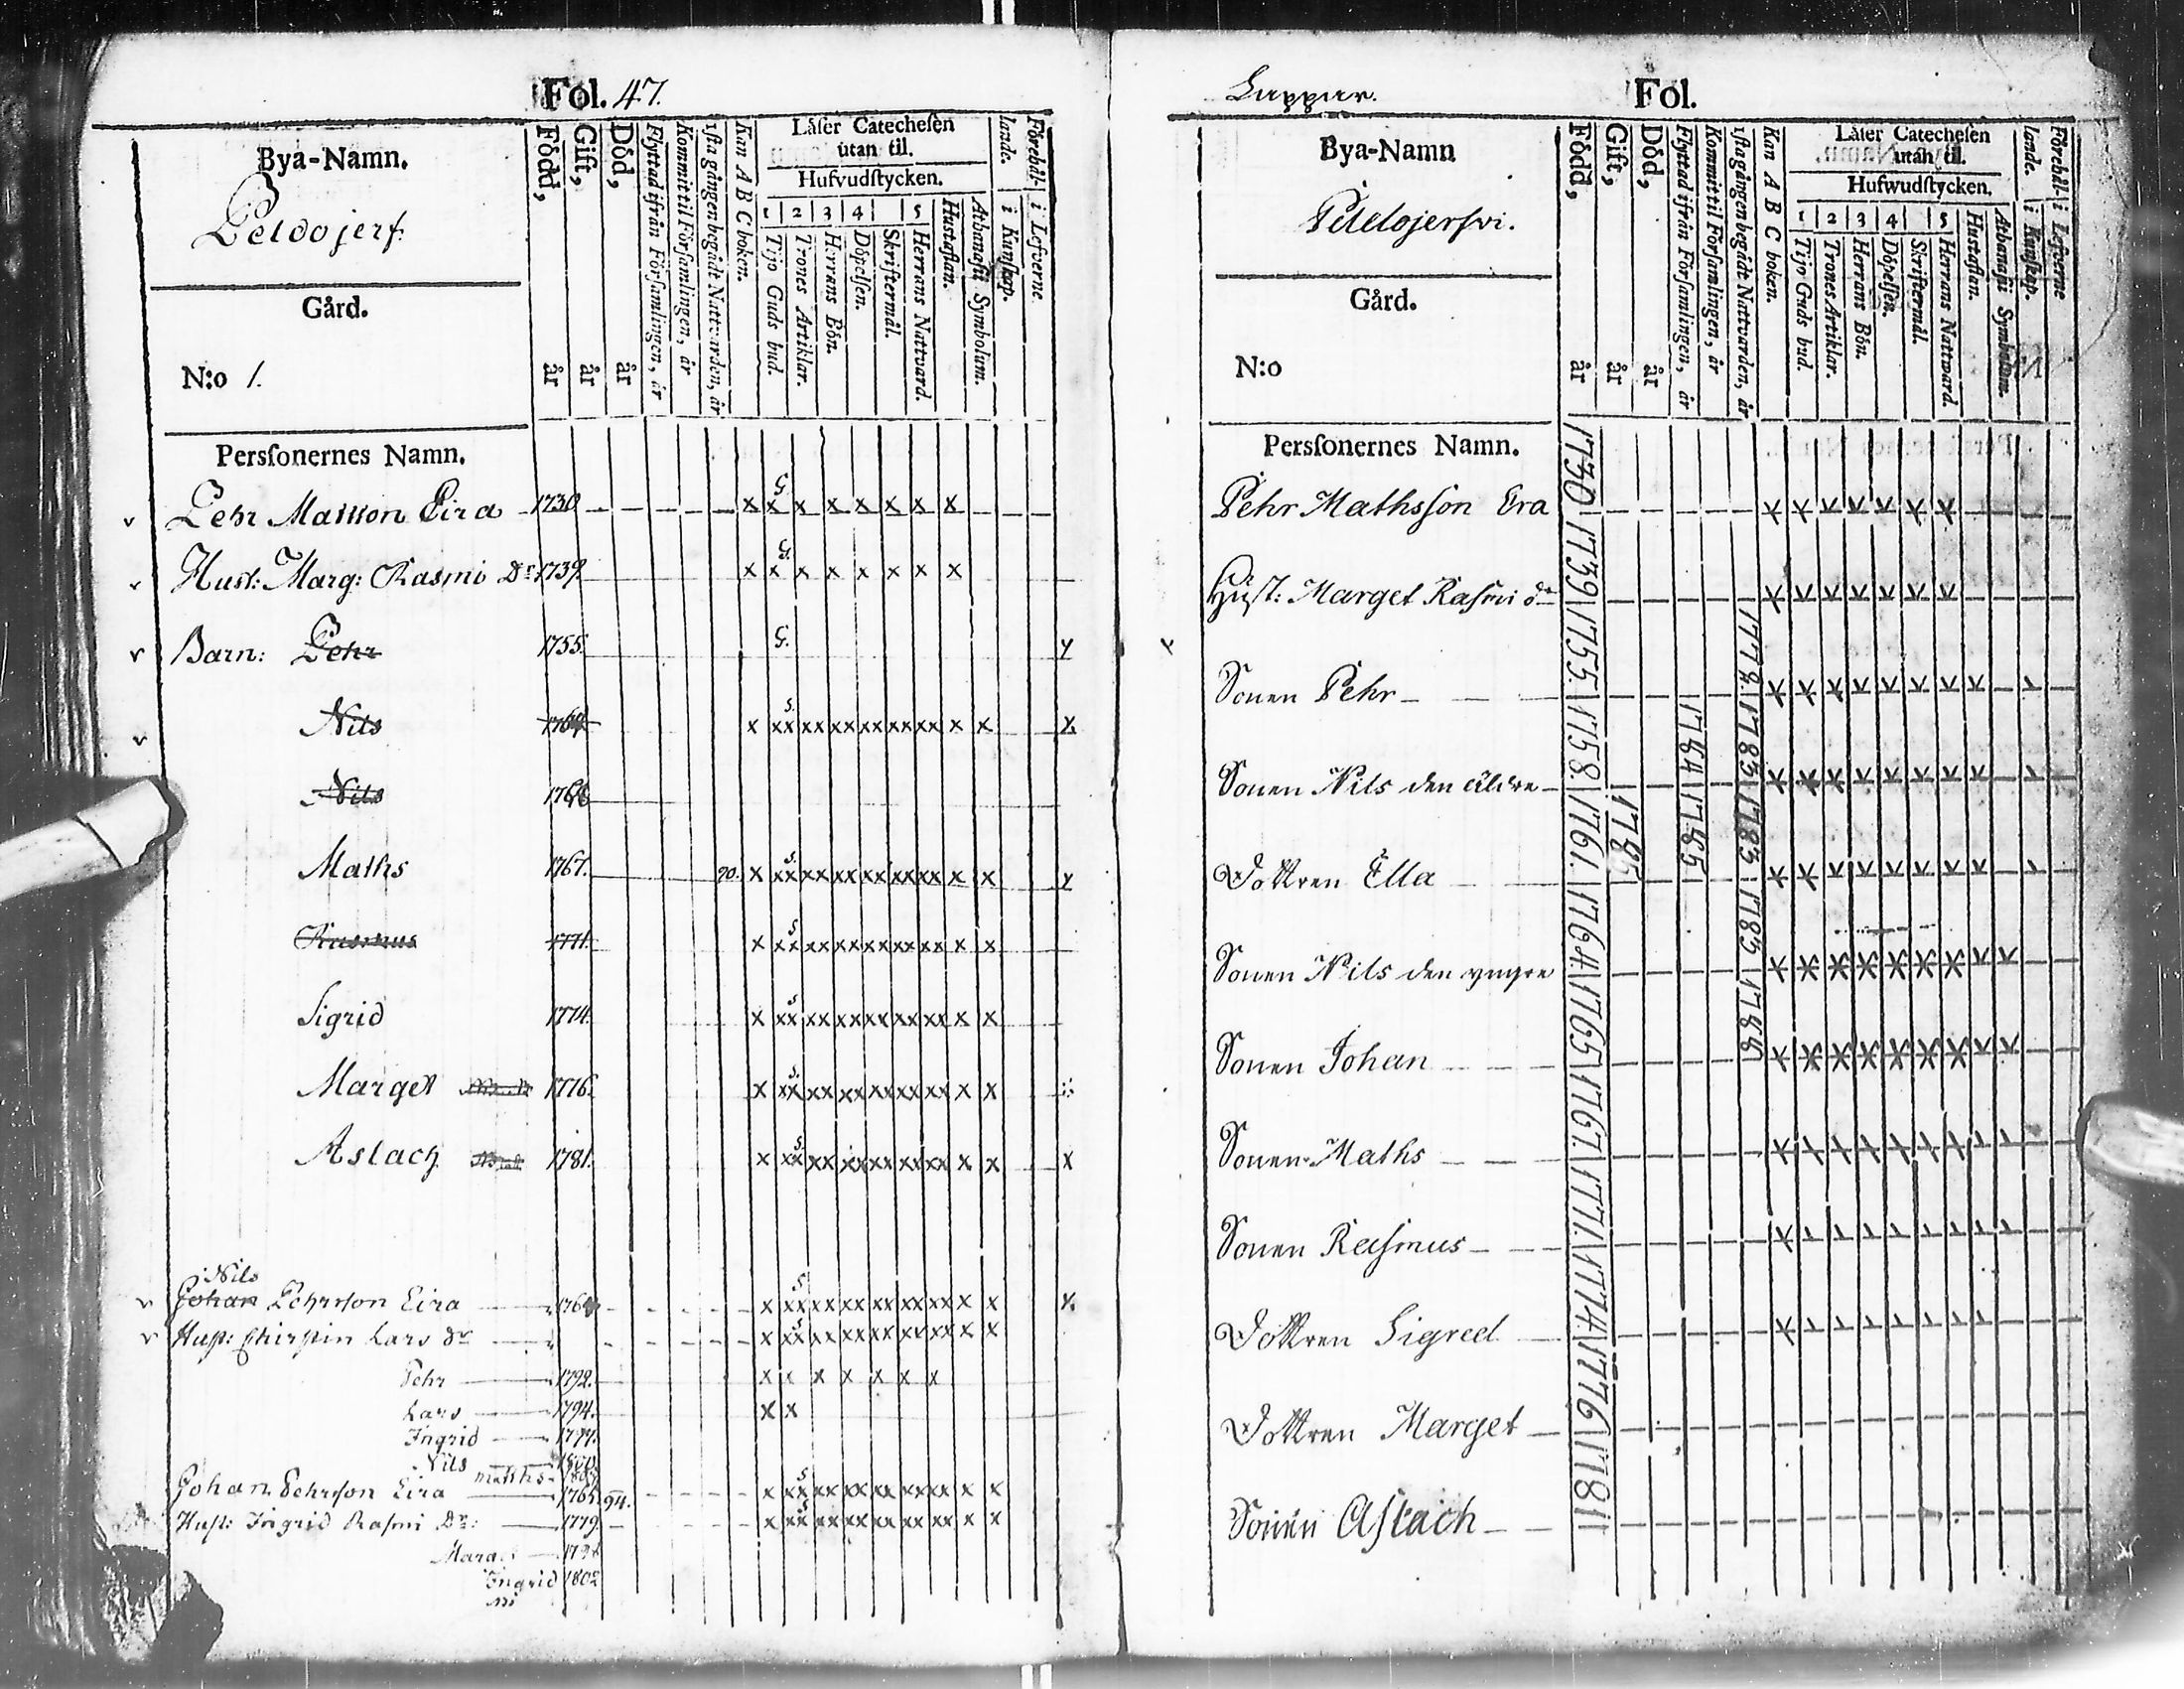 Fol. 47.
Bya-Namn.
Peldojerf.
Gård.
N:o 1.
Persſonernes Namn.
Född, år
Gift, år
Död, år
Flyttad ifrån Församlingen, år
Kommit til Församlingen, år
1sta gången begådt Nattvarden, år
Kan A B C boken.
Läſer Catecheſen
utan til.
Hufvudſtycken.
1 2 3 4 5
Tijo Guds bud.
Trones Artiklar.
Herrans Bön.
Döpelſen.
Skriftermål.
Herrans Nattvard.
Huſtaflan.
Athanaſii Symbolum.
Förehållande.
i Kunſkap.
i Lefverne
Pehr Matsson Eira 1730 G. x x x x x x x x
Hust: Marg: Rasmi Dr 1739 G. x x x x x x x x
Barn: Pehr 1755. G.
Nils x xx xx xx xx xx xx x x
Nils
Maths 1767. 90. x xx xx xx xx xx xx x x
Rasmus 1771. x xx xx xx xx xx xx x x
Sigrid 1774. x xx xx xx xx xx xx x x
Marget 1776. x xx xx xx xx xx xx x x
Aslach 1781. x xx xx xx xx xx xx x x
Nils
Johan Pehrsson Eira x xx xx xx xx xx xx x x
Hust: Chirstin Lars dr x xx xx xx xx xx xx x x
Pehr 1792. x x x x x x x
Lars 1794. x x
Ingrid
Nils 1800.
Maths
Johan Pehrsson Eira 1765. 94. x xx xx xx xx xx xx x x
Hust: Ingrid Rasmi Dr: 1779. x xx xx xx xx xx xx x x
Ingrid 1802
Lappar.
Fol.
Bya-Namn
Peldojerfvi.
Gård.
N:o
Persſonernes Namn.
Född, år
Gift, år
Död, år
Flyttad ifrån Församlingen, år
Kommit til Församlingen, år
1sta gången begådt Nattvarden, år
Kan A B C boken.
Läſer Catecheſen
utan til.
Hufwudſtycken.
1 2 3 4 5
Tijo Guds bud.
Trones Artiklar.
Herrans Bön.
Döpelſen.
Skriftermål.
Herrans Nattward.
Huſtaflan.
Athanaſii Symbolum.
Förehållande.
i Kunſkap.
i Lefverne
Pehr Mathsſon Era 1730
Huſt: Marget Raſmi dr 1739
Sonen Pehr 1755. 1778.
Sonen Nils den äldre 1758. 1784 1783
Dottren Ella 1761. 1785 1785 1783
Sonen Nils den yngre 1764. 1785
Sonen Johan 1765 1788
Sonen Maths 1767.
Sonen Raſmus 1771.
Dottren Sigred 1774.
Dottren Marget 1776
Sonen Aſlach 1781